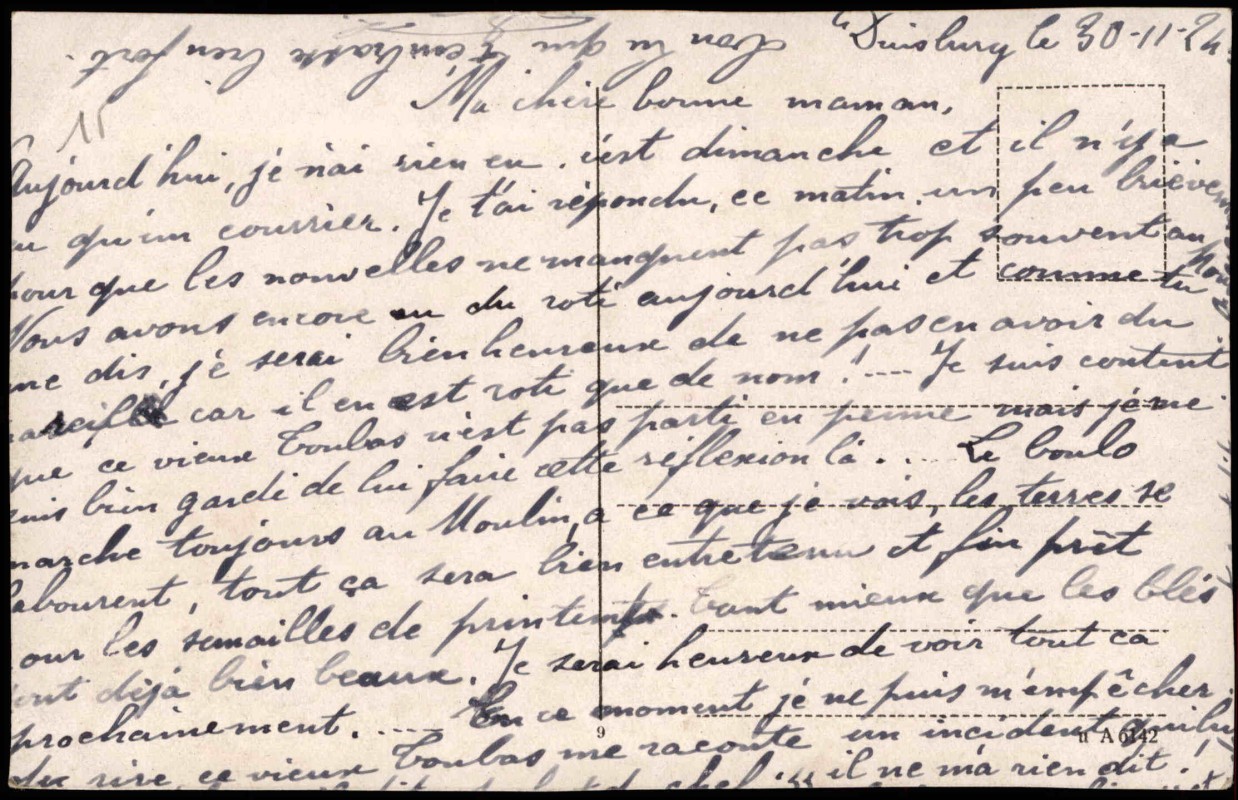 Duisburg le 30-11-24
Ma chère bonne maman,
Aujourd'hui, je n'ai rien eu. c'est dimanche et il n'y a
eu qu'un courrier. Je t'ai répondu, ce matin, un peu brièvem
pour que les nouvelles ne manquent pas trop souvent au
Nous avons encore eu du roti aujourd'hui et comme tu
me dis, je serai bien heureux de ne pas en avoir du
pareille car il en est roti que de nom! ---- Je suis content
que ce vieux Toubas n'est pas parti en perme mais je me
suis bien gardé de lui faire cette réflexion là. .... Le boulo
marche toujours au Moulin, a ce que je vois, les terres se
labourent, tout ça sera bien entretenu et fin prêt
pour les semailles de printemps. Tant mieux que les blés
sont déjà bien beaux. Je serai heureux de voir tout ca
prochainement. .---- En ce moment je ne puis m'empêcher
du rire, ce vieux Toubas me raconte un incident qu'il
il ne m'a rien dit!
9
A 6142
15